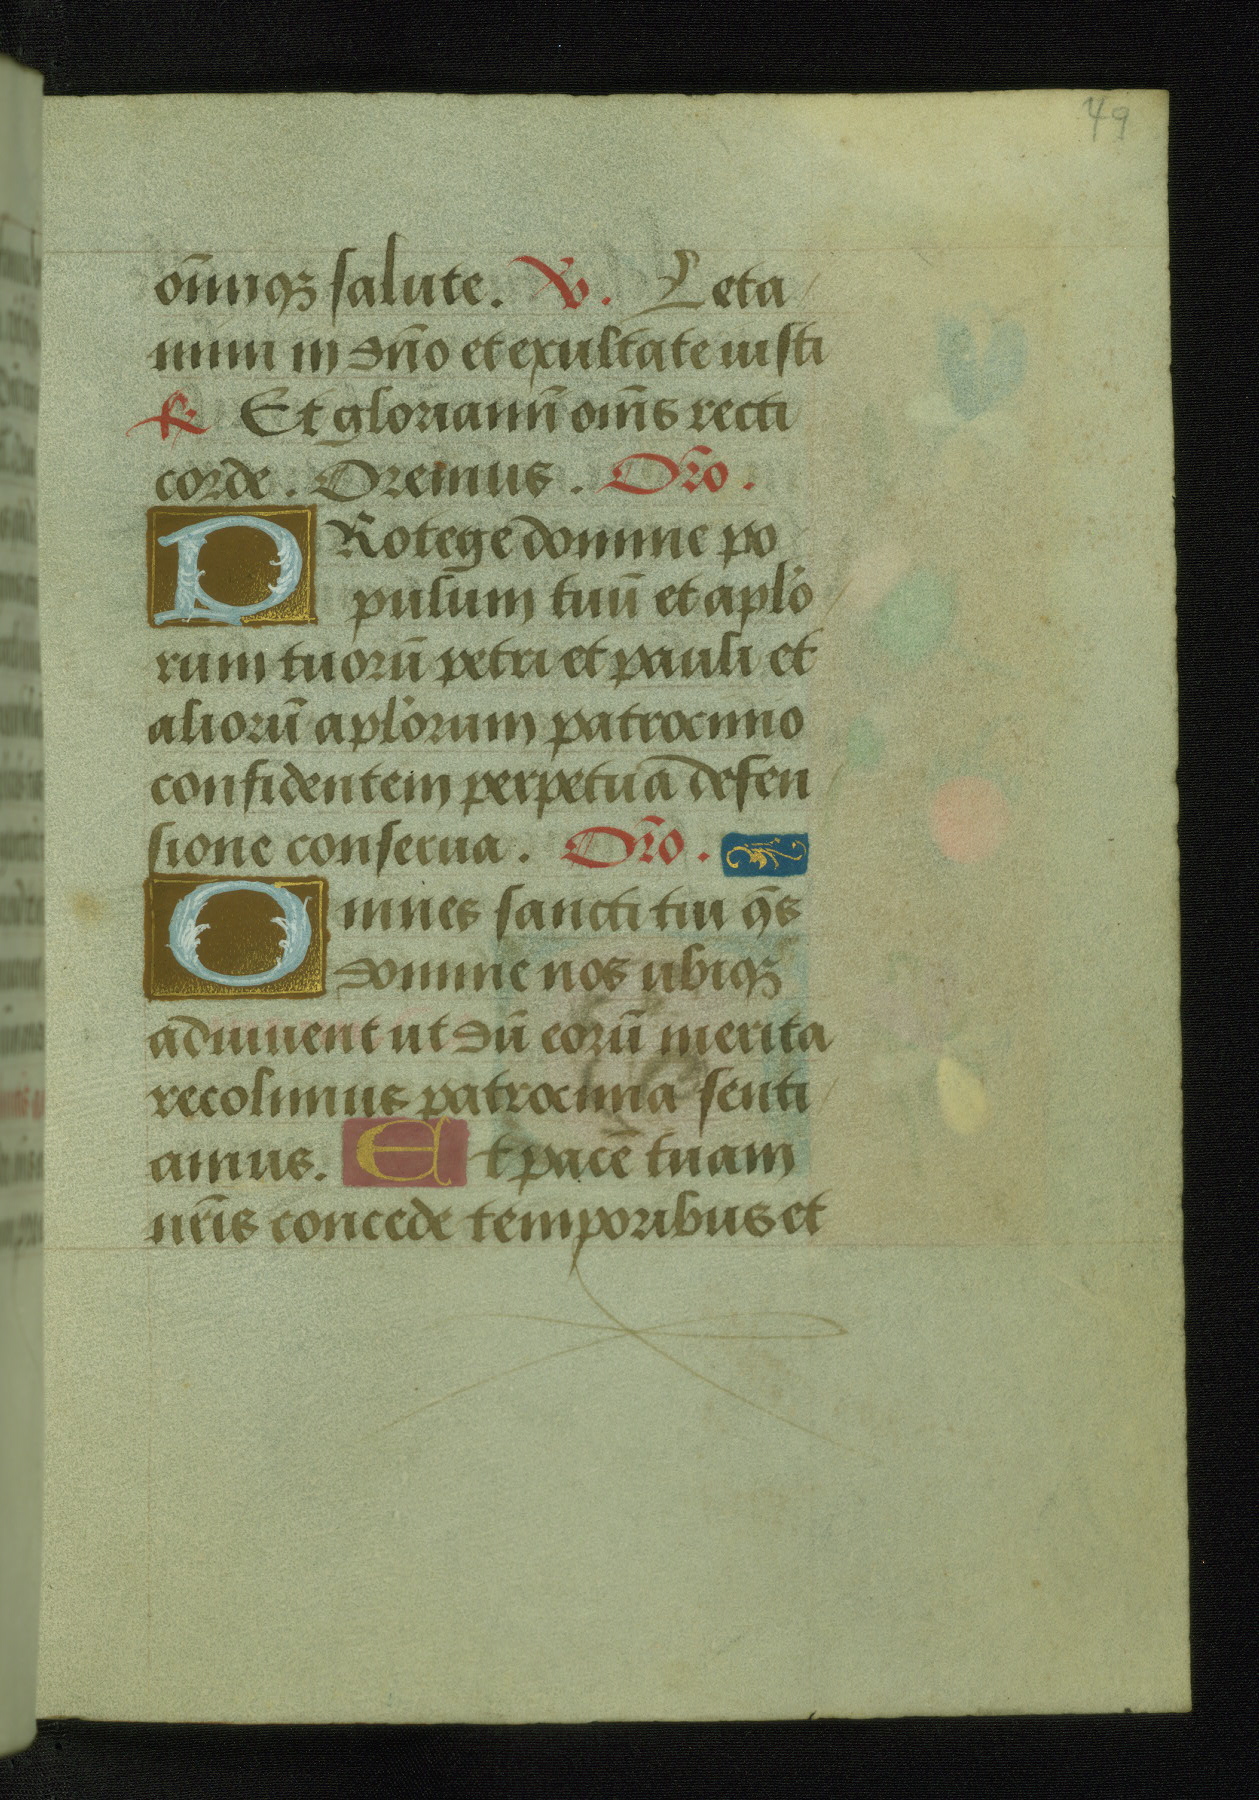 49
om̄iqꝫ salute. V. Leta
mini in dn̄o et exultate iusti
R. Et gloriamī om̄s recti
corde. Oremus. Or̄o.
PRotege domine po
pulum tuū et aplō
rum tuorū petri et pauli et
aliorū aplōrum patrocinio
confidentem perpetuā defen
sione conserua. Or̄o.
Omnes sancti tui qs̄
domine nos ubiqꝫ
adiuuent ut dū eorū merita
recolimus patrocinia senti
amus. Et pacē tuam
nr̄is concede temporibus et